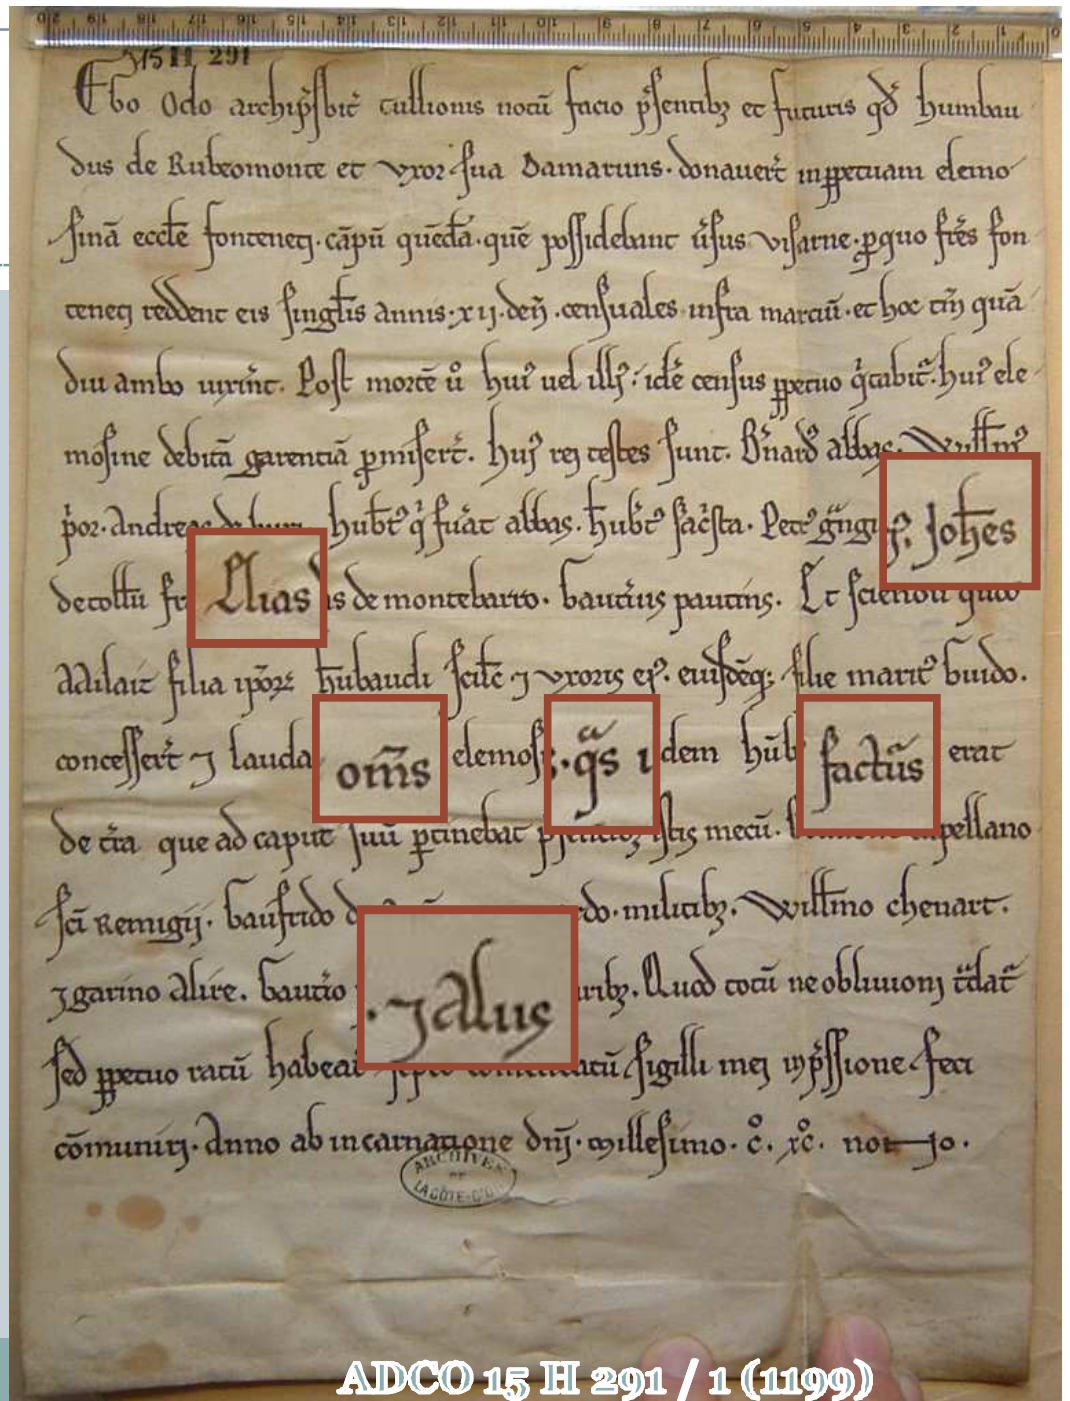 15 H 291
Ego Odo archip̄sbiť tullionis notū facio p̄sentibȝ et futuris qď humbau
dus de Rubeomonte et vxor sua Damaruns. donauerť inꝑpetuam elemo
sinā eccłe fonteneti. cāpū quēdā. quē possidebant ūsus visarne. ꝑ quo frēs fon
teneti reddent eis singłis annis. xij. deñ. censuales infra marciū. et hoc tm̄ quā
diu ambo uixinť. Post mortē ů huiꝰ uel illiꝰ. idē census ꝑpetuo q̇tabiť. huiꝰ ele
mosine debitā garentiā ꝓmiserť. Huiꝰ rei testes sunt. B̄nardꝰ abbas. Willm̄ꝰ
p̓or. Andreas hub̄tꝰ q̇ fuāt abbas. hub̄tꝰ sac̄sta. Petꝰ Joh̄es
Elias de montebarro. Et sciendū
Adilait filia ip̄oꝝ hūbaudi scilc̄ ⁊ vxoris eiꝰ. eiusdēqꝫ filie maritꝰ Guido.
concesserť ⁊ lauda om̄s elemos .q̄s idem hūb factus erat
de t̄ra que ad caput suū ꝑtinebat istis mecū. pellano
sc̄i Remigij. Gaufrido do. militibȝ. Willm̄o chenart.
⁊ garino Alire. Gauťio ⁊ Alius ribȝ. Quod totū ne obliuioni t̄dať
sed ꝑpetuo ratū habeať sigilli mei inp̄ssione feci
cōmuniri. Anno ab incarnatione dn̄i. millesimo. c̊. xc̊. nono.
ARCHIVES
DE
LA CÔTE-D'OR
ADCO 15 H 291 / 1 (1199)